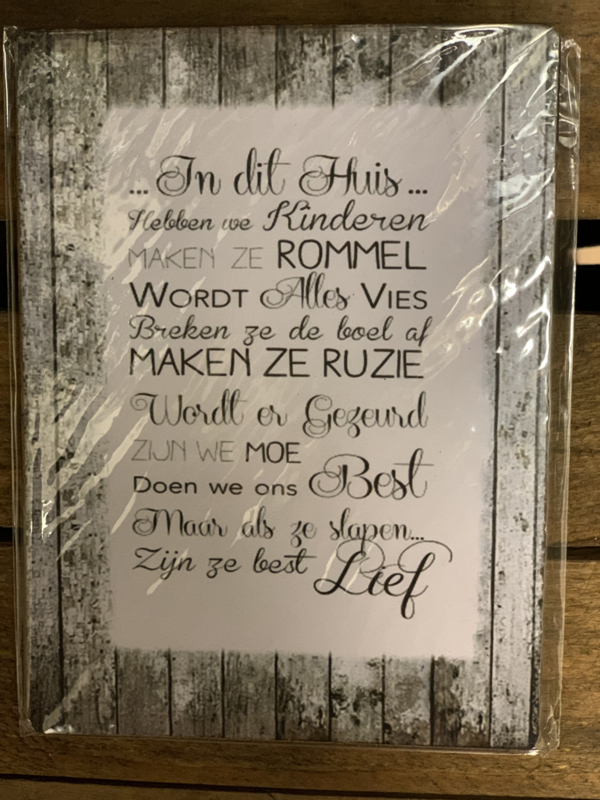 ... In dit Huis...
Hebben we Kinderen
MAKEN ZE ROMMEL
WORDT Alles VIES
Breken ze de boel af
MAKEN ZE RUZIE
Wordt er Gezeurd
ZIJN WE MOE
Doen we ons Best
Maar als ze slapen...
Zijn ze best Lief